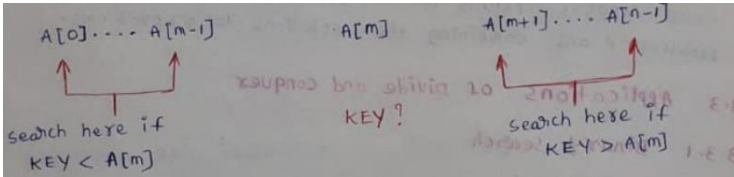 A[0] .... A[m-1] A[m] A[m+1] .... A[n-1]
KEY ?
search here if
KEY < A[m]
search here if
KEY > A[m]